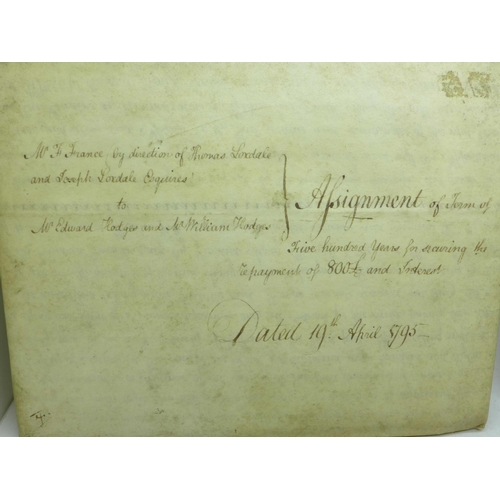 Mr F. France by direction of Thomas Loxdale
and Joseph Loxdale Esquires
to
Mr Edward Hodges and Mr William Hodges
Assignment of Term of
Five hundred Years for securing the
repayment of 800£ and Interest
Dated 19th April 1795